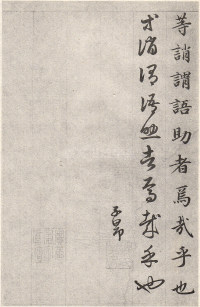 等誚謂語助者焉哉乎也
等誚謂語助者焉哉乎也
子昂